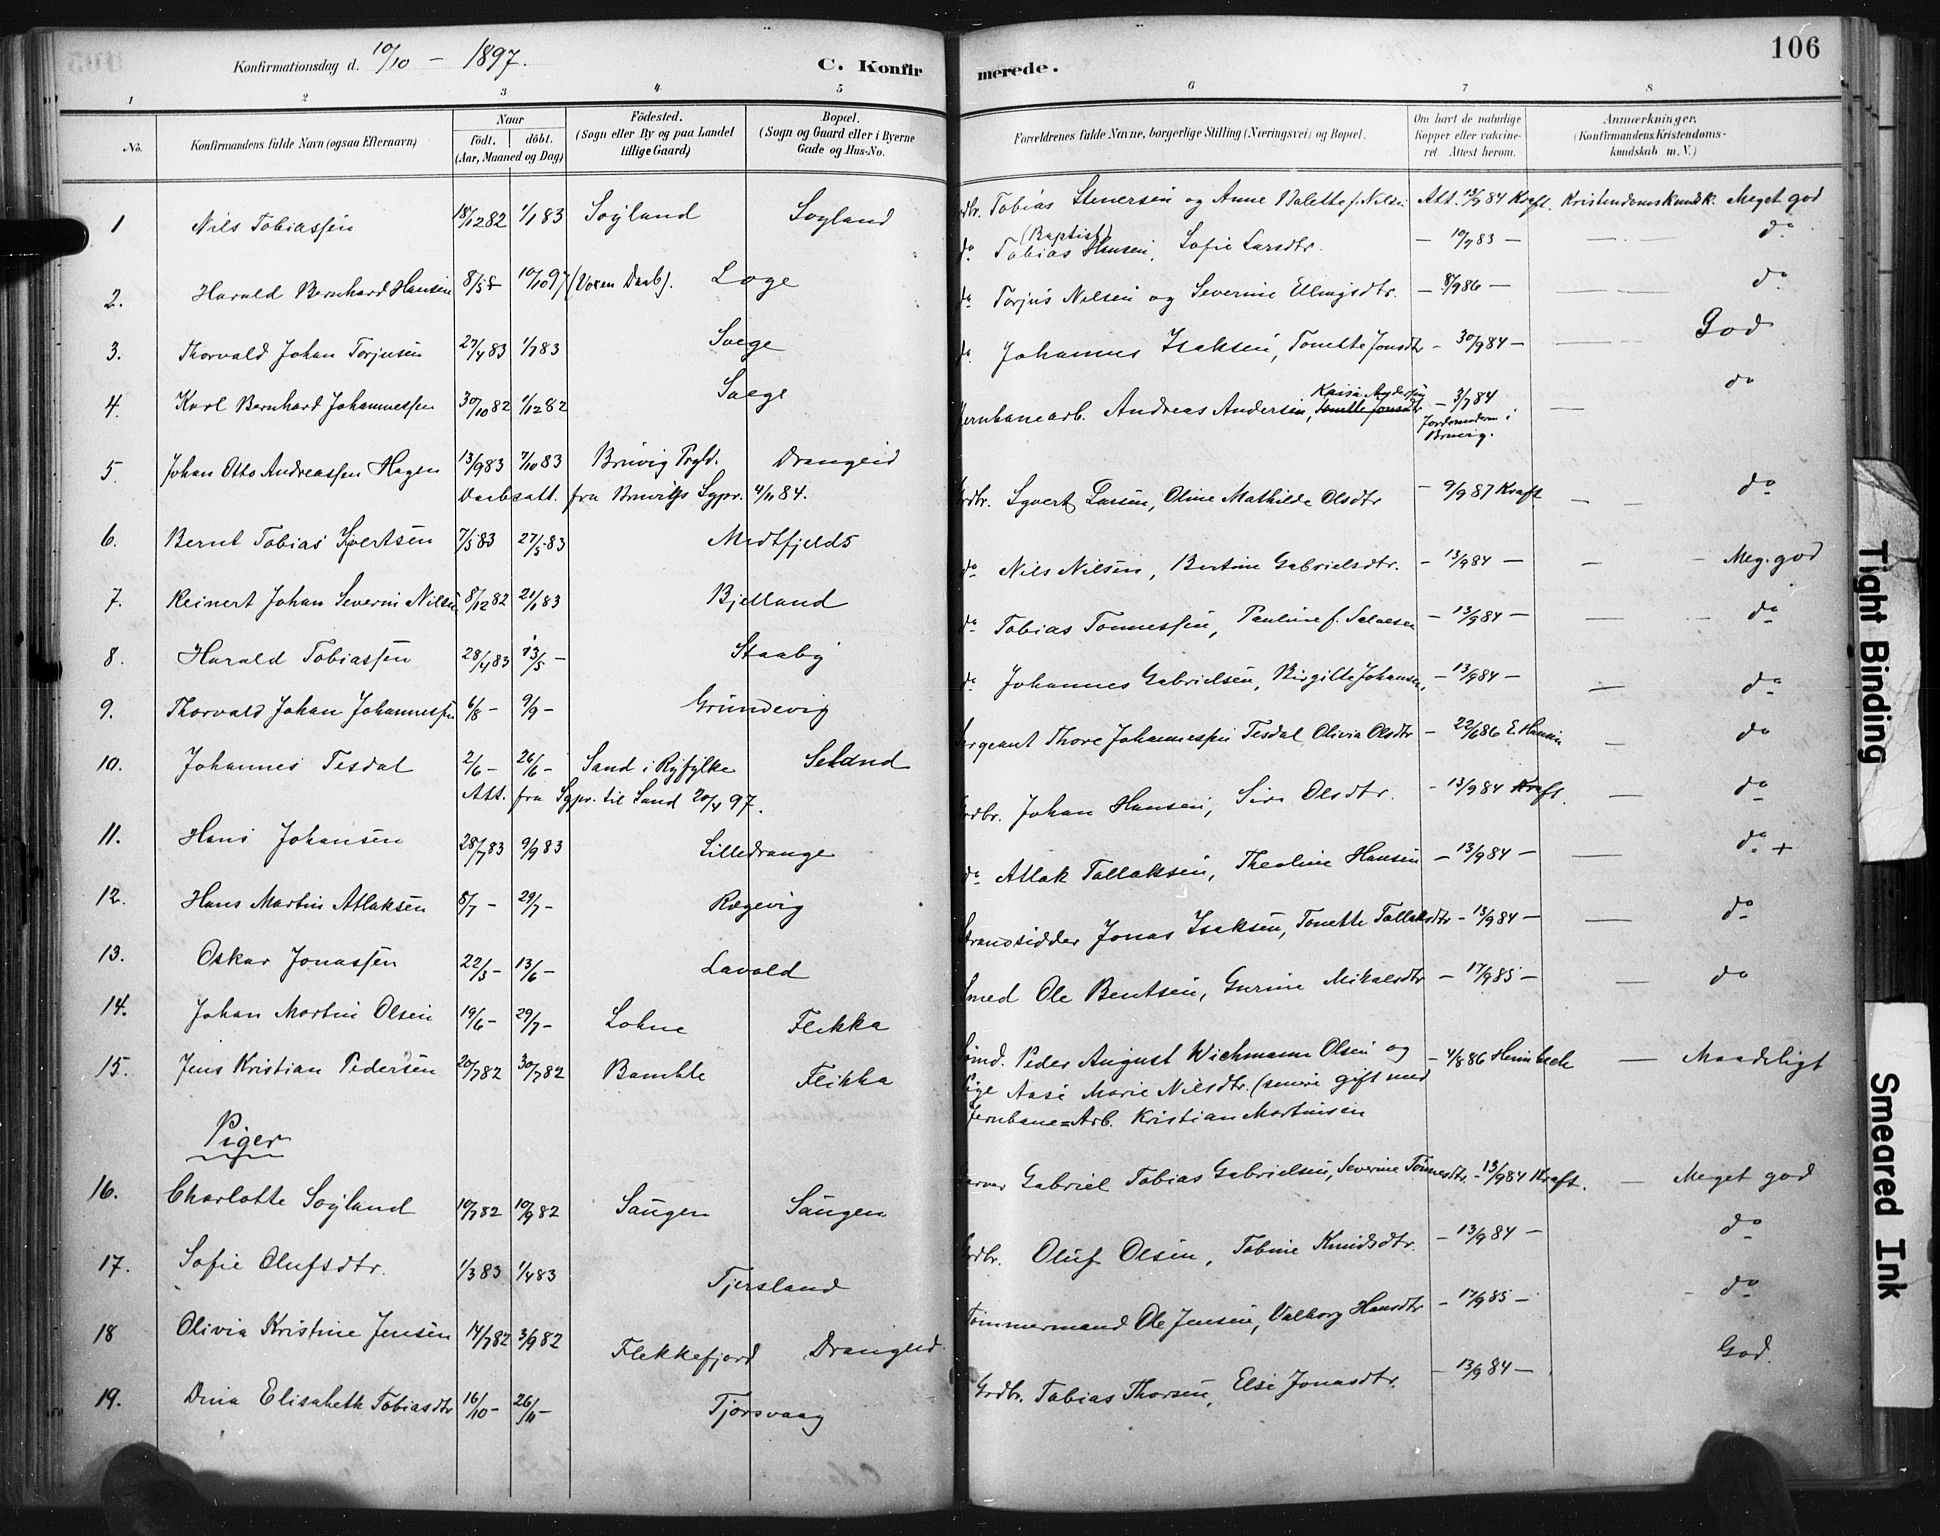 Konfirmationsdag d. 10/10 – 1897.
C. Konfirmerede.
106
1 2 3 4 5 6 7 8
No.
Konfirmandens fulde Navn (ogsaa Efternavn)
Naar
født. døbt.
(Aar, Maaned og Dag)
Fødested.
(Sogn eller By og paa Landet
tillige Gaard)
Bopæl.
(Sogn og Gaard eller i Byerne
Gade og Hus-No.
Forældrenes fulde Navne, borgerlige Stilling (Næringsvei) og Bopæl.
Om havt de naturlige
Kopper eller vakcine-
ret Attest herom.
Anmærkninger.
(Konfirmandens Kristendoms-
kundskab m. V.)
1 Nils Tobiassen 18/12 82 1/1 83 Søyland Søyland
Tobias Stenersen og Anne Valette f. Nilsen Att. 13/9 84 Kraft. Kristendomskundsk. Meget god
2. Harald Bernhard Hansen 10/10 97 (Voxen Daab). Loge
do (Baptist) Tobias Hansen, Sofie Larsdtr. – 10/7 83 – — — do
3. Thorvald Johan Torjusen 27/4 83 1/7 83 Svege
do Torjus Nilsen og Severine Ellingsdtr. – 8/9 86 – — — do
4. Karl Bernhard Johannessen 30/10 82 1/12 82 Svege
do Johannes Isaksen, Tonette Jonsdtr – 30/9 84 – — God
5. Johan Otto Andreassen Hagen 13/9 83 7/10 83 Bruvig Prgld. Drangeid
Daabsatt. fra Bruvigs Sgpr. 4/11 84.
Jernbanearb. Andreas Andersen, Kaisa Andersen Tonette Jonsdtr – 3/7 84 — do
Jordemoderen i
Bruvig.
6. Bernt Tobias Syvertsen 7/5 83 27/5 83 Midtfjelds
Grdbr. Syvert Larsen, Oline Mathilde Olsdtr – 9/9 87 Kraft — — do
7. Reinert Johan Severin Nilsen 8/12 82 21/1 83 Bjelland
do Nils Nilsen, Bertine Gabrielsdtr. – 13/9 84 – — – Meg. god
8. Harald Tobiassen 28/4 83 13/5 – Staaby
do Tobias Tønnessen, Pauline f. Salvesen – 13/9 84 – — — do
9. Thorvald Johan Johannessen 6/8 – 9/9 – Grundevig
do Johannes Gabrielsen, Birgitte Johansen, – 13/9 84 – — do
10. Johannes Tesdal 2/6 – 26/6 – Sand i Ryfylke Seland
Att. fra Sgpr. til Sand 20/4 97.
Sergeant Thore Johannessen Tesdal Olivia Olsdtr – 22/6 86 E. Hansen — do
11. Hans Johansen 28/7 83 9/9 83 Lilledrange
Grdbr. Johan Hansen, Siri Olsdtr. – 13/9 84 Kraft. — do
12. Hans Martin Atlaksen 8/7 – 29/7 – Rægevig
do Atlak Tallaksen, Theoline Hansen – 13/9 84 – — do +
13. Oskar Jonassen 22/5 – 13/6 – Lavold
Strandsidder Jonas Isaksen, Tonette Tallaksdtr – 13/9 84 – — do
14. Johan Martin Olsen 19/6 – 29/7 – Lohne Flikka
Smed Ole Bentsen, Gurine Mikalsdtr – 17/9 85 – — do
15. Jens Kristian Pedersen 20/7 82 30/7 82 Bamble Flikka
Sømd. Peder August Wichmann Olsen og – 4/8 86 Heimbeck — Maadeligt
Pige Aase Marie Nilsdtr. (senere gift med
Jernbane=Arb. Kristian Martinsen
Piger
16. Charlotte Søyland 10/7 82 10/9 82 Saugen Saugen
Garver Gabriel Tobias Gabrielsen, Severine Tønnesdtr. – 13/9 84 Kraft. — Meget god
17. Sofie Olufsdtr. 1/3 83 1/4 83 Tjersland
Grdbr. Oluf Olsen, Tobine Knudsdtr. – 13/9 84 – do
18 Olivia Kristine Jensen 14/7 82 3/9 82 Flekkefjord Drangeid.
Tømmermand Ole Jensen, Valborg Hansdtr – 17/9 85 – – do
19. Dina Elisabeth Tobiasdtr 16/10 – 26/11 – Tjørsvaag
Grdbr. Tobias Thorsen, Else Jonasdtr. – 13/9 84 – God.
Tight Binding
Smeared Ink